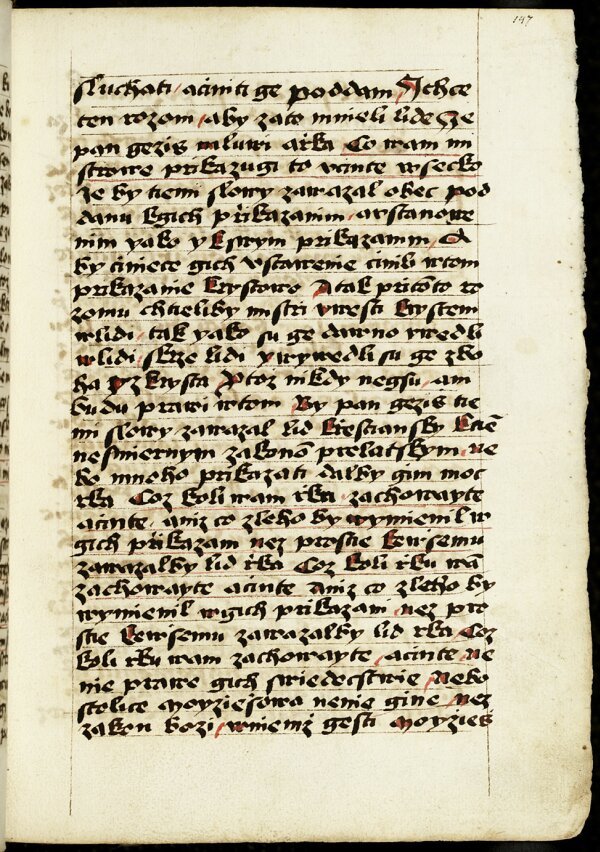 147
sluchati / a cziniti ge poddani A chce
ten rozom / aby zato mnieli lide Ze
pan gezis mluwi arka Co wam mi
strowe prikazugi to cinte wsecko
Ze by tiemi slowy zawazal obec pod
danu kgich prikazanim / a vstanowe
nim yako y kswym prikazanim / A
by ciniece gich vstawenie cinili w tom
prikazanie krystowo A tak pri tomto ro
zomu chtieliby mistri vwesti krystem
w lidi / tak yako su ge dawno vwedli
w lidi / skrze lidi y wywedli su ge z bo
ha y z krysta Protoz nikdy negsu / ani
budu prawi w tom By pan gezis tie
mi slowy zawazal lid krestiansky ktiem
nesmiernym zakonom prelatskym / ne
bo mnoho prikazati dalby gim moc
rka Coz koli wam rka / zachowayte
a cinte / aniz co zleho by wymienil w
gich prikazani nez prostie kewsemu
zawazalby lid rka Coz koli rku wam
zachowayte a cinte Aniz co zleho by
wymienil w gich prikazani / nez pro
stie kewsemu zawazalby lid rka Coz
koli rku wam zachowayte / a cinte / ne
nie prawe gich swiedectwie / Nebo
stolice Moyziesowa nenie gine / nez
zakon bozi / w niemz gesti Moyzies